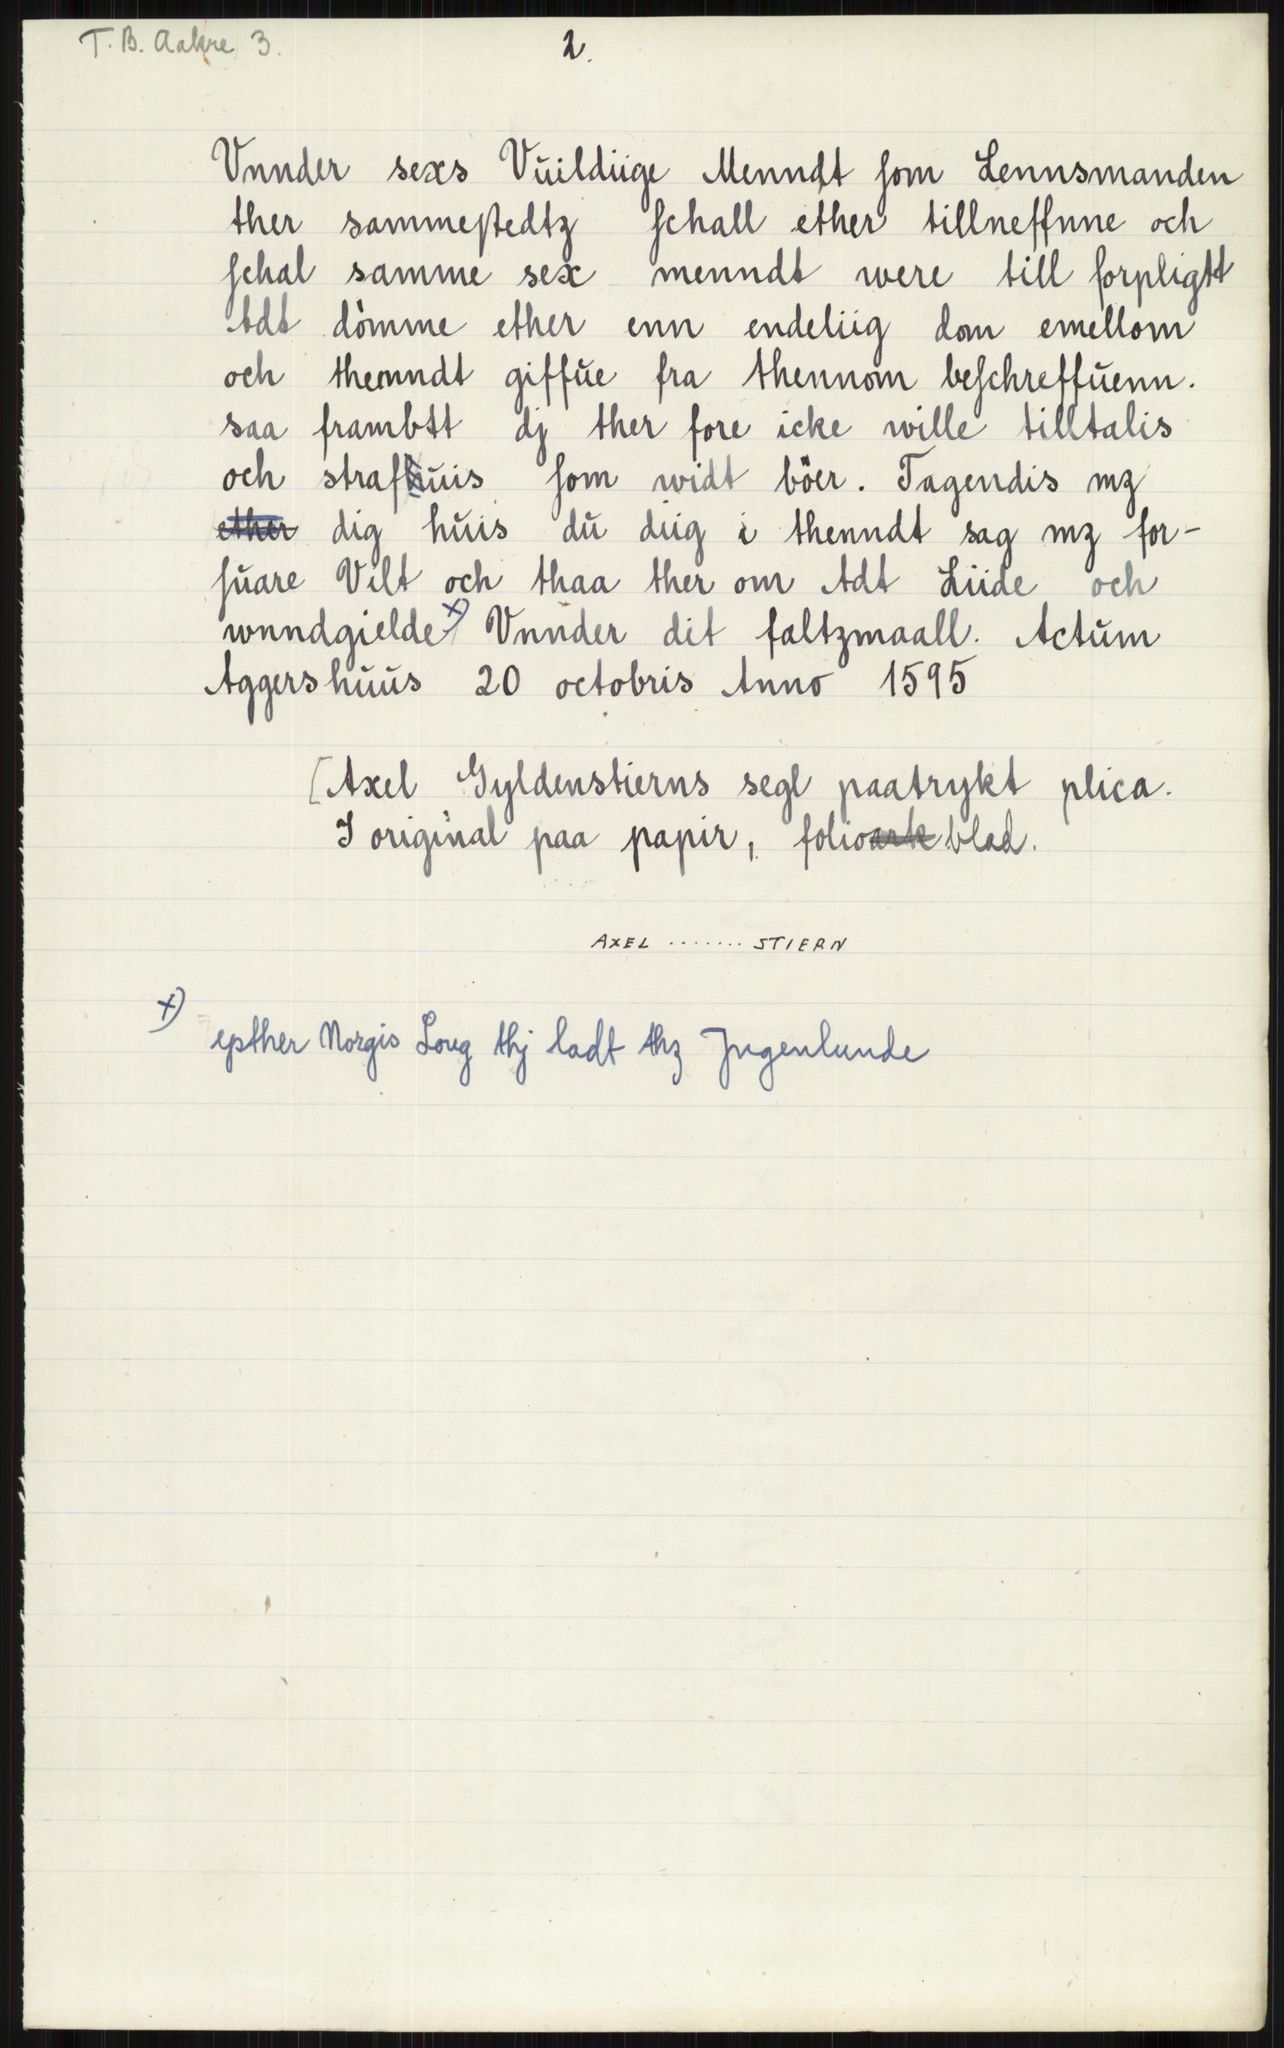 T. B. Aakre 3.
2.
Vnnder sexs Vŭildiige Menndt som Lennsmanden
ther sammestedtz schall ether tillneffnne och
schal samme sex menndt were till forpligtt
Adt dömme ether enn endeliig dom emellom
och thenndt giffŭe fra thennom beschreffŭenn.
saa frambtt dj ther fore icke wille tilltalis
och straffŭis som widt böer. Tagendis mz
ether dig hŭis dŭ diig i thenndt sag mz for-
sŭare Vilt och thaa ther om Adt Liide och
wnndgielde x) Vnnder dit faltzmaall. Actŭm
Aggershŭŭs 20 octobris Anno 1595
[Axel Gyldenstierns segl paatrykt plica.
I original paa papir, folioark blad.
AXEL ....... STIERN
x) epther Norgis Loug thj ladt thz Jngenlunde